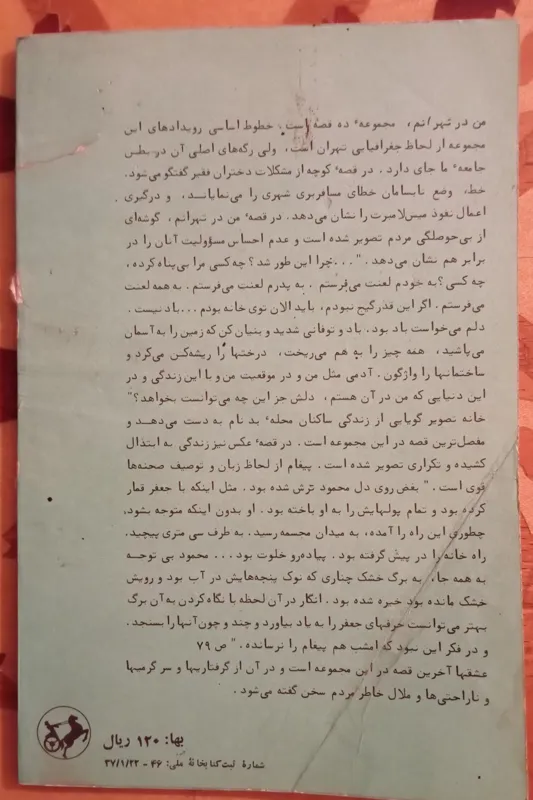 من در شهر اتم، مجموعهٔ ده قصه است. خطوط اساسی رویدادهای این
مجموعه از لحاظ جغرافیایی تهران است، ولی رگه‌های اصلی آن در بطن
جامعهٔ ما جای دارد. در قصهٔ کوچه از مشکلات دختران فقیر گفتگو می‌شود.
خط، وضع نابسامان خطای مسافربری شهری را می‌نمایاند، و درگیری
اعمال نفوذ میس‌لامبرت را نشان می‌دهد. در قصهٔ من در شهرانم، گوشه‌ای
از بی‌حوصلگی مردم تصویر شده است و عدم احساس مسؤولیت آنان را در
برابر هم نشان می‌دهد. "...چرا این طور شد؟ چه کسی مرا بی‌پناه کرده،
چه کسی؟ به خودم لعنت می‌فرستم. به پدرم لعنت می‌فرستم. به همه لعنت
می‌فرستم. اگر این قدر گیج نبودم، باید الان توی خانه بودم ... باد نیست.
دلم می‌خواست باد بود. باد و توفانی شدید و بنیان کن که زمین را به آسمان
می‌پاشید، همه چیز را به هم می‌ریخت، درختها را ریشه‌کن می‌کرد و
ساختمانها را واژگون. آدمی مثل من و در موقعیت من و با این زندگی و در
این دنیایی که من در آن هستم، دلش جز این چه می‌توانست بخواهد؟"
خانه تصویر گویایی از زندگی ساکنان محلهٔ بد نام به دست می‌دهد و
مفصل‌ترین قصه در این مجموعه است. در قصهٔ عکس نیز زندگی به ابتذال
کشیده و تکراری تصویر شده است. پیغام از لحاظ زبان و توصیف صحنه‌ها
قوی است. "بغض روی دل محمود ترش شده بود. مثل اینکه با جعفر قمار
کرده بود و تمام پولهایش را به او باخته بود. او بدون اینکه متوجه بشود،
چطوری این راه را آمده، به میدان مجسمه رسید. به طرف سی متری پیچید.
راه خانه را در پیش گرفته بود. پیاده‌رو خلوت بود... محمود بی توجه
به همه جا، به برگ خشک چناری که نوک پنجه‌هایش در آب بود و رویش
خشک مانده بود خیره شده بود. انگار در آن لحظه با نگاه کردن به آن برگ
بهتر می‌توانست حرفهای جعفر را به یاد بیاورد و چند و چون آنها را بسنجد.
و در فکر این نبود که امشب هم پیغام را نرسانده." ص ۷۹
عشقها آخرین قصه در این مجموعه است و در آن از گرفتاریها و سر گرمیها
و ناراحتی‌ها و ملال خاطر مردم سخن گفته می‌شود.
بها: ۱۲۰ ریال
شمارهٔ ثبت کتابخانهٔ ملی: ۴۶ - ۳۷/۱/۲۲